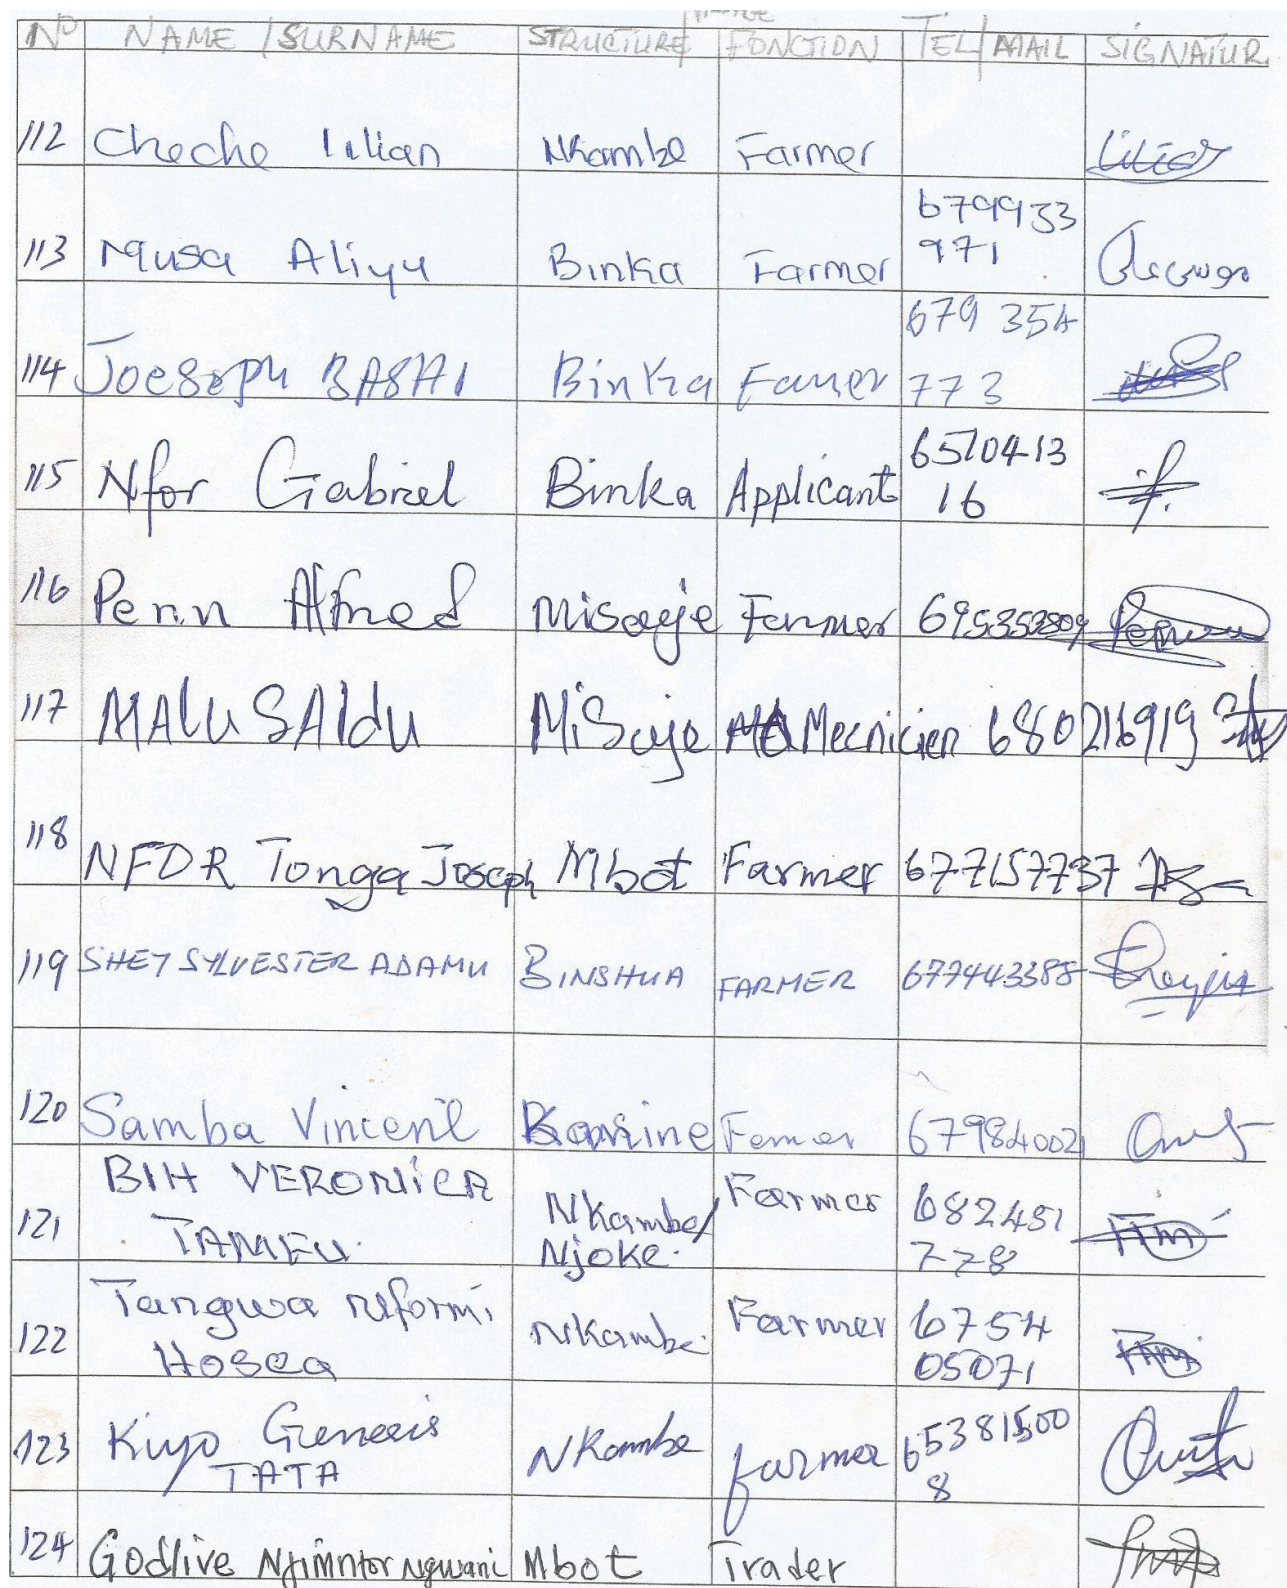 No NAME / SURNAME STRUCTURE/ FONCTION TEL/MAIL SIGNATUR
112 Cheche Lilian Nkambe Farmer
113 Musa Aliyu Binka Farmer 679933
971
114 Joesoph BASHI Binka Famer 679 354
773
115 Nfor Gabriel Binka Applicant 6510413
16
116 Penn Alfred Misaje Farmer 695353809
117 MALU SAIdu Misaje Mecnicien 680216919
118 NFOR Tonga Joseph Mbot Farmer 677157737
119 SHEY SYLVESTER ADAMU BINSHUA FARMER 677443388
120 Samba Vincent Femer 679840021
121 BIH VERONICA
TAMFU Nkambe/
Njoke Farmer 682451
778
122 Tangwa Nformi
Hosea Nkambe Farmer 6754
05071
123 Kiyo Genesis
TATA NKambe farmer 65381500
8
124 Godlive Njimntor Ngwani Mbot Trader